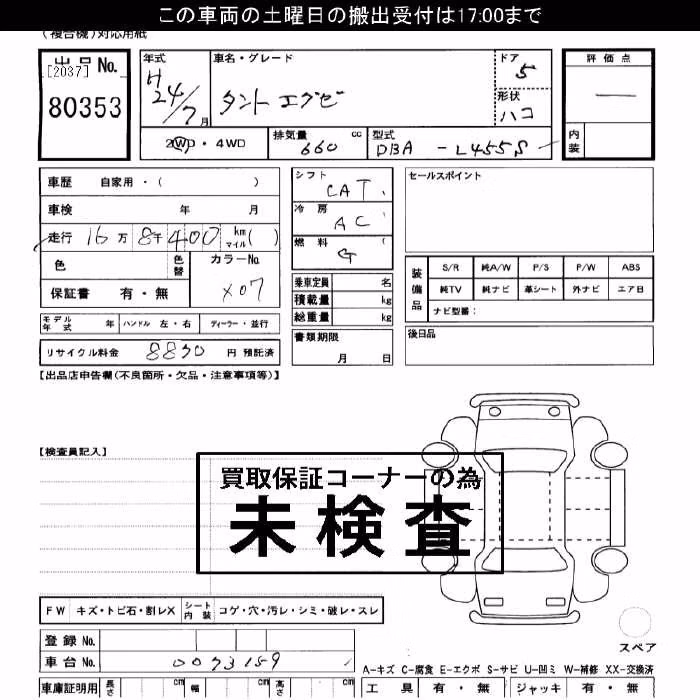 この車両の土曜日の搬出受付は17:00まで
(複合機)対応用紙
出品 No.
[2037]
80353
年式
H24/7月
車名・グレード
タント エグゼ
ドア
5
形状
ハコ
評価点
—
内装
2WD・4WD
排気量 660 cc
型式 DBA - L455S
車歴 自家用・( )
車検 年 月
走行 16万 8千 400 km マイル( )
色
色替
カラーNo.
X07
保証書 有・無
シフト CAT.
冷房 AC
燃料 G (
乗車定員 名
積載量 kg
総重量 kg
セールスポイント
装備品
S/R 純A/W P/S P/W ABS
純TV 純ナビ 革シート 外ナビ エア日
ナビ型番:
モデル年式 年 ハンドル 左・右 ディーラー・並行
書類期限
月 日
後日品
リサイクル料金 8830 円 預託済
【出品店申告欄(不良箇所・欠品・注意事項等)】
【検査員記入】
買取保証コーナーの為
未検査
FW キズ・トビ石・割レX シート内装 コゲ・穴・汚レ・シミ・破レ・スレ
登録 No.
車台 No. 0073159
スペア
A-キズ C-腐食 E-エクボ S-サビ U-凹ミ W-補修 XX-交換済
車庫証明用 長さ cm 幅 cm 高さ cm
工具 有・無 ジャッキ 有・無